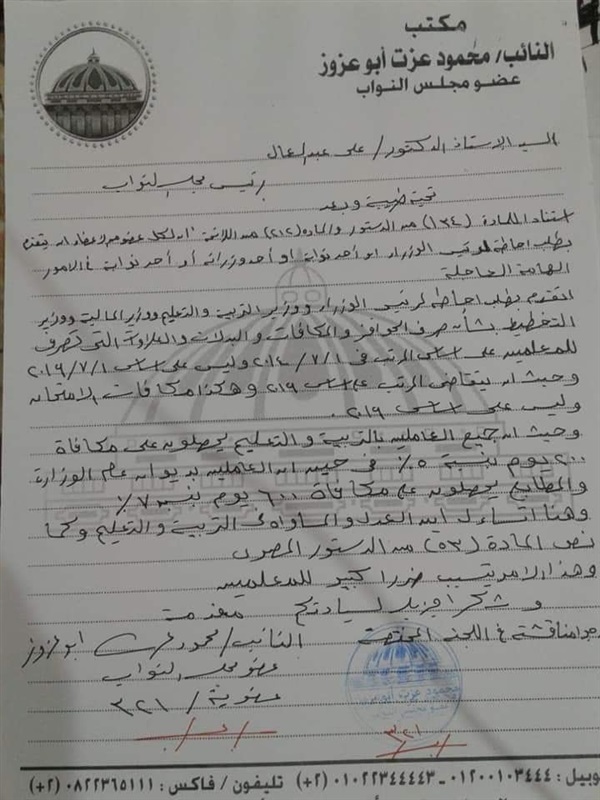 مكتب
النائب/ محمود عزت أبو عزوز
عضو مجلس النواب
السيد الاستاذ الدكتور / على عبد العال
رئيس مجلس النواب
تحية طيبة وبعد
استناد للمادة (١٣٤) من الدستور والمادة (٢١٢) من اللائحة "أن لكل عضو من الاعضاء ان يتقدم
بطلب احاطة لرئيس الوزراء او أحد نوابه او أحد وزرائه أو أحد نوابه فى الامور
الهامة العاجلة
اتقدم بطلب احاطة لرئيس الوزراء ووزير التربية والتعليم ووزير المالية ووزير
التخطيط بشأن صرف الحوافز والمكافات والبدلات والعلاوات التى تصرف
للمعلمين على اساس المرتب فى ٢٠١٤/٧/١ وليس على اساس ٢٠١٩/٧/١
وحيث انه يتقاضى المرتب على اساس ٢٠١٩ وهكذا مكافات الامتحانات
وليس على اساس ٢٠١٩.
وحيث ان جميع العاملين بالتربية والتعليم يحصلون على مكافاة
٢٠٠ يوم بنسبة ٥٪ فى حين ان العاملين بديوان عام الوزارة
والمطابع يحصلون على مكافاة ٦٠٠ يوم بنسبة ٧٪
وهنا اتساءل اين العدل والمساواه فى التربية والتعليم وكما
نص المادة (٥٣) من الدستور المصرى
وهذا الامر يسبب ضررا كبير للمعلمين
و شكرا جزيلا لسيادتكم مقدمة
رجاء مناقشته فى اللجنة المختصة النائب / محمود عزت ابو عزوز
عضو مجلس النواب
عضوية / ٣٢١
محمود عزت أبو عزوز
٣٢١
موبيل: ٠١٢٠٠١٠٣٤٤٤ - ٠١٠٢٢٣٤٤٤٤٣ (٢+) تليفون / فاكس : ٠٨٢٢٣٦٥١١١ (٢+)